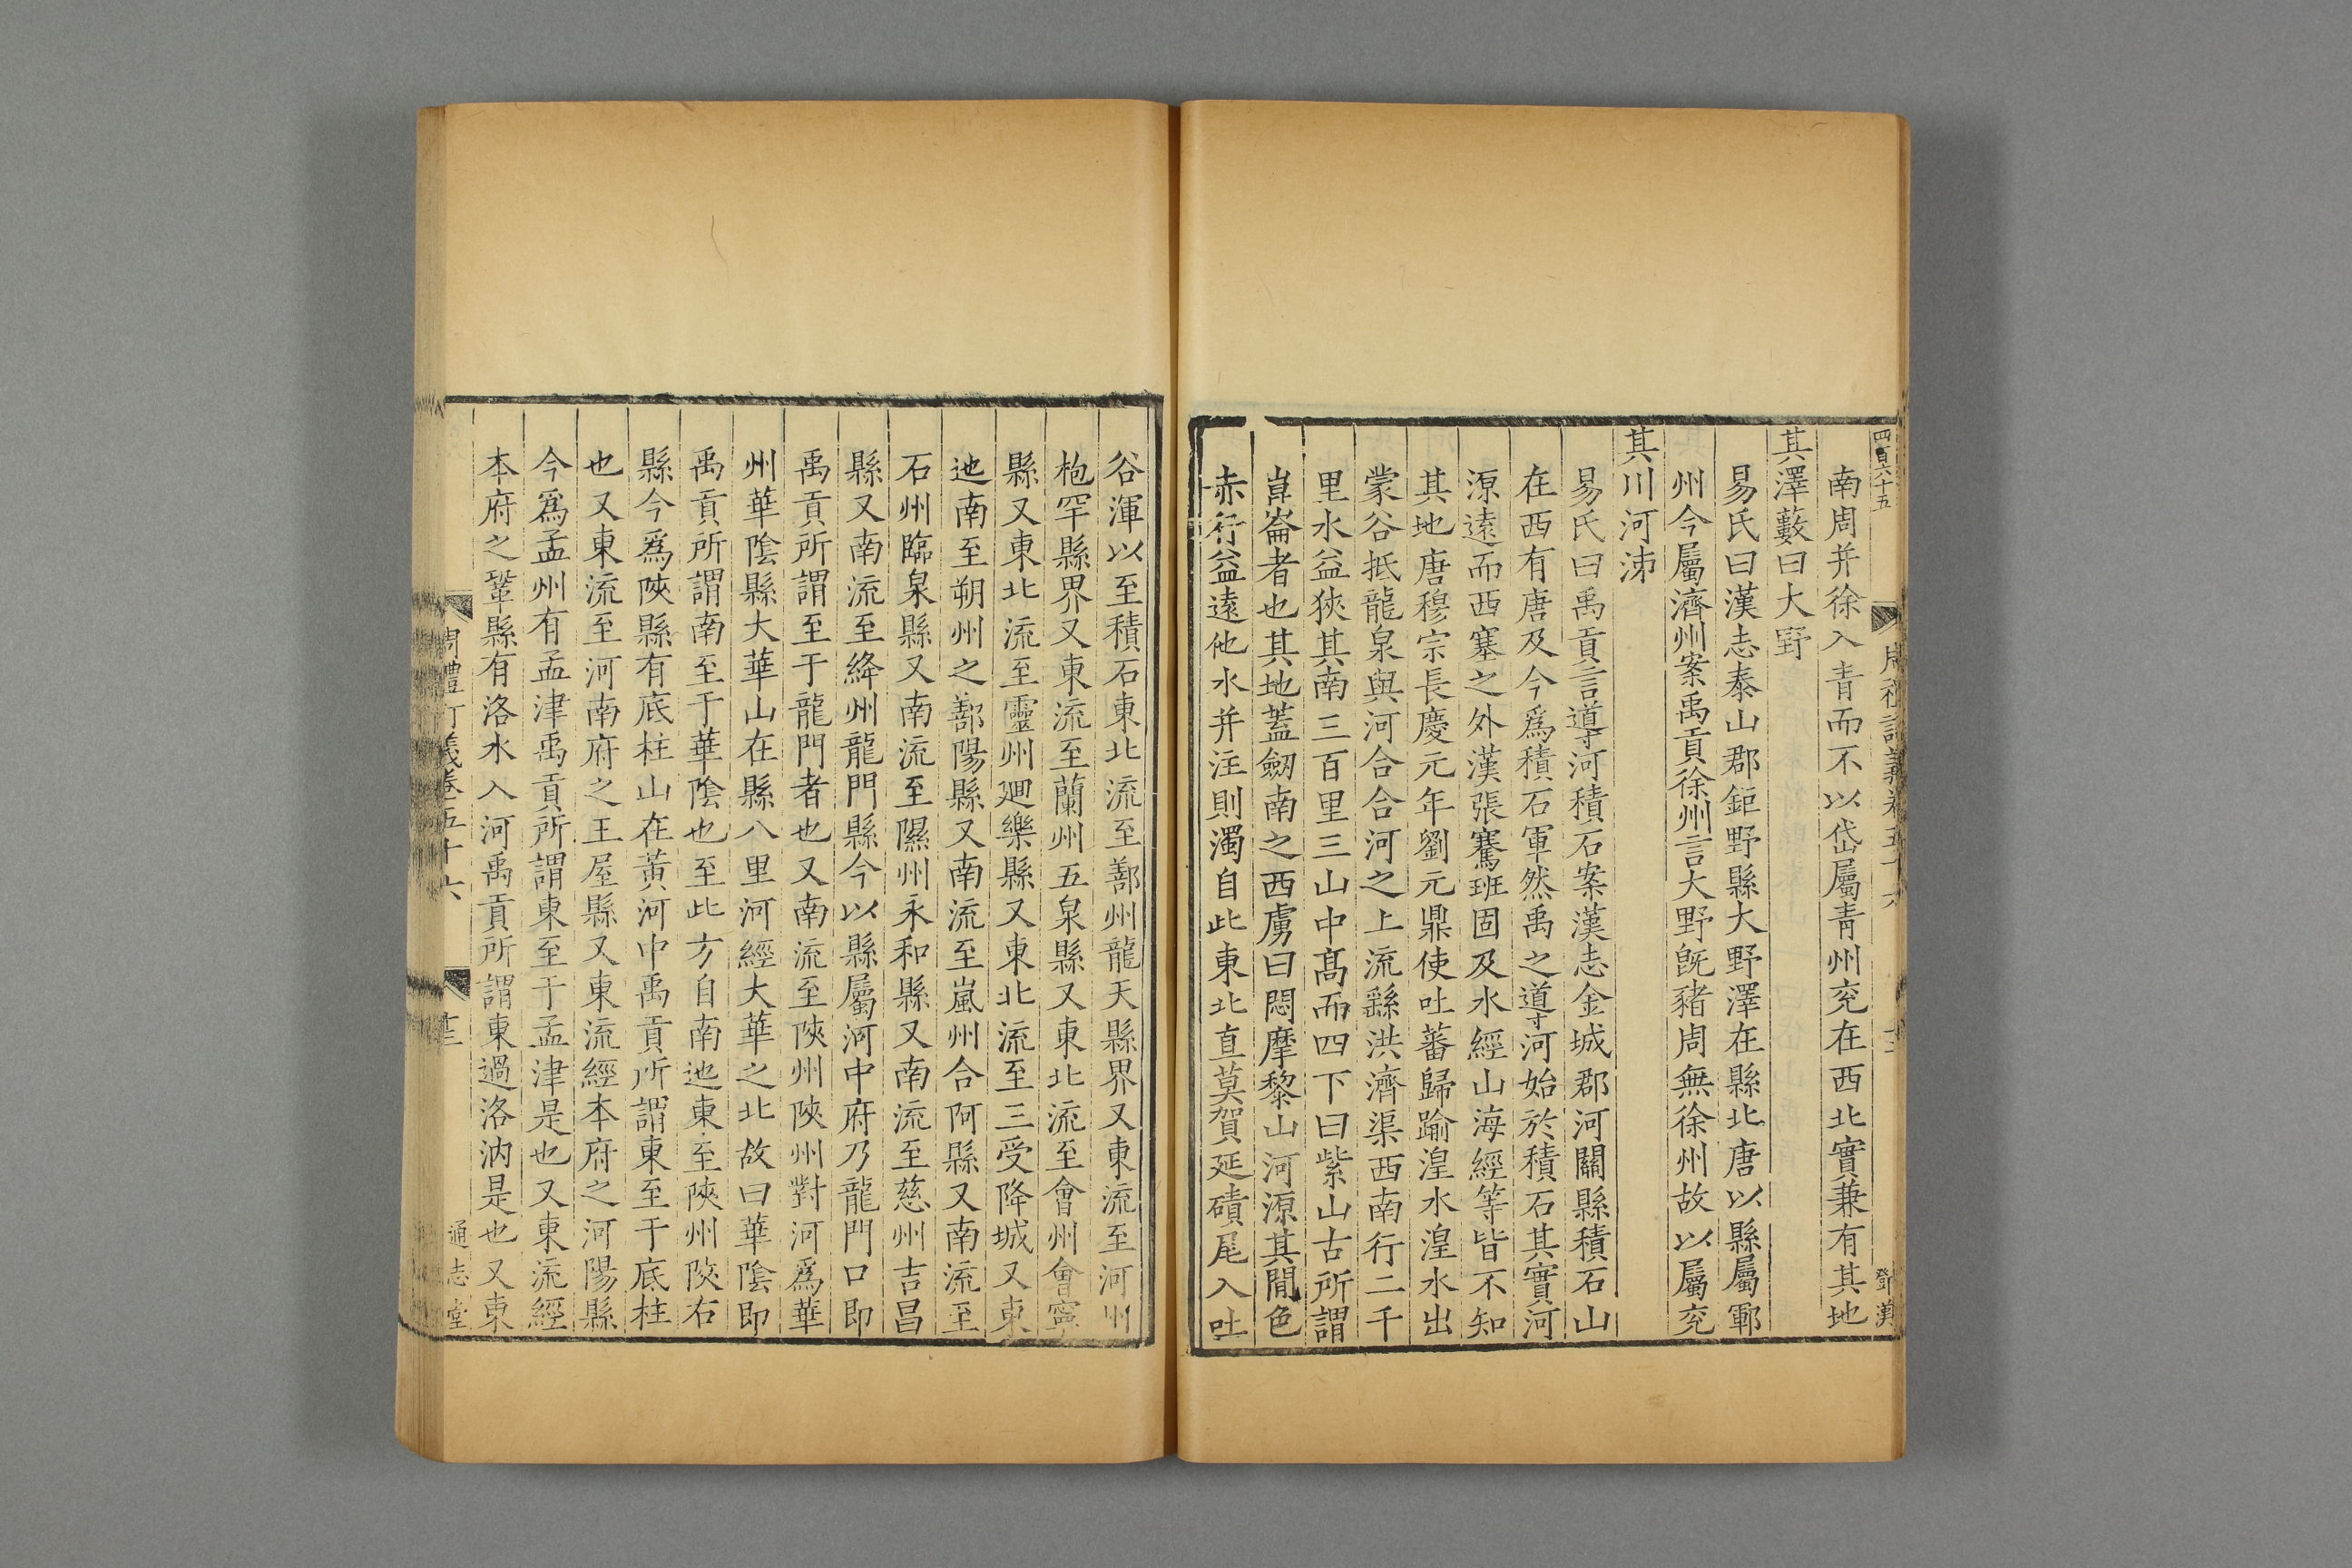 四百六十五
南周并徐入青而不以岱屬青州兖在西北實兼有其地
其澤藪曰大野
易氏曰漢志泰山郡鉅野縣大野澤在縣北唐以縣屬鄆
州今屬濟州案禹貢徐州言大野旣豬周無徐州故以屬兖
其川河泲
易氏曰禹貢言導河積石案漢志金城郡河關縣積石山
在西有唐及今爲積石軍然禹之導河始於積石其實河
源遠而西塞之外漢張騫班固及水經山海經等皆不知
其地唐穆宗長慶元年劉元鼎使吐蕃歸踰湟水湟水出
蒙谷抵龍泉與河合合河之上流繇洪濟渠西南行二千
里水益狹其南三百里三山中髙而四下曰紫山古所謂
崑崙者也其地蓋劒南之西虜曰悶摩黎山河源其閒色
赤行益遠他水并注則濁自此東北直莫賀延磧尾入吐
谷渾以至積石東北流至鄯州龍天縣界又東流至河州
枹罕縣界又東流至蘭州五泉縣又東北流至會州會寧
縣又東北流至靈州廻樂縣又東北流至三受降城又東
迆南至朔州之鄯陽縣又南流至嵐州合阿縣又南流至
石州臨泉縣又南流至隰州永和縣又南流至慈州吉昌
縣又南流至絳州龍門縣今以縣屬河中府乃龍門口即
禹貢所謂至于龍門者也又南流至陜州陜州對河爲華
州華陰縣大華山在縣八里河經大華之北故曰華陰即
禹貢所謂南至于華陰也至此方自南迆東至陜州陜右
縣今爲陜縣有底柱山在黃河中禹貢所謂東至于底柱
也又東流至河南府之王屋縣又東流經本府之河陽縣
今爲孟州有孟津禹貢所謂東至于孟津是也又東流經
本府之鞏縣有洛水入河禹貢所謂東過洛汭是也又東
周禮訂義卷五十六
通志堂